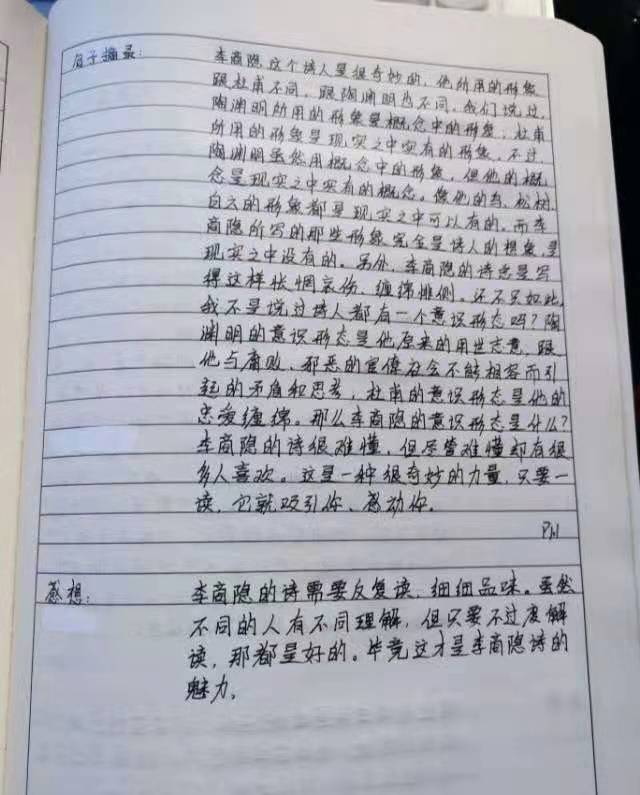 句子摘录： 李商隐这个诗人是很奇妙的，他所用的形象
跟杜甫不同，跟陶渊明也不同，我们说过，
陶渊明所用的形象是概念中的形象，杜甫
所用的形象是现实之中实有的形象，不过
陶渊明虽然用概念中的形象，但他的概
念是现实之中实有的概念。像他的鸟、松树
白云的形象都是现实之中可以有的。而李
商隐所写的那些形象完全是诗人的想象，是
现实之中没有的。另外，李商隐的诗总是写
得这样怅惘哀伤、缠绵悱恻。还不只如此，
我不是说过诗人都有一个意识形态吗？陶
渊明的意识形态是他原来的用世志意，跟
他与腐败、邪恶的官僚社会不能相容而引
起的矛盾和思考，杜甫的意识形态是他的
忠爱缠绵。那么李商隐的意识形态是什么？
李商隐的诗很难懂，但尽管难懂却有很
多人喜欢。这是一种很奇妙的力量，只要一
读，它就吸引你、感动你。
感想： 李商隐的诗需要反复读，细细品味。虽然
不同的人有不同理解，但只要不过度解
读，那都是好的。毕竟这才是李商隐诗的
魅力。